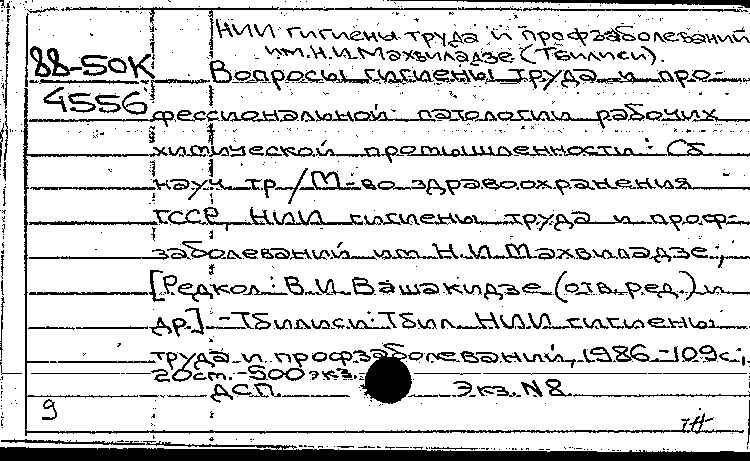 НИИ гигиены труда и профзаболеваний
им. Н.И. Махвиладзе (Тбилиси).
88-50К
Вопросы гигиены труда и про-
4556
фессиональной патологии рабочих
химической промышленности: Сб
науч. тр / М-во здравоохранения
ГССР, НИИ гигиены труда и проф-
заболеваний им. Н.И. Махвиладзе;
[Редкол.: В.И. Вашакидзе (отв. ред.) и
др.] - Тбилиси: Тбил. НИИ гигиены
труда и профзаболеваний, 1986. - 109с;
20см. - 500 экз.
ДСП. Экз. N 8
9